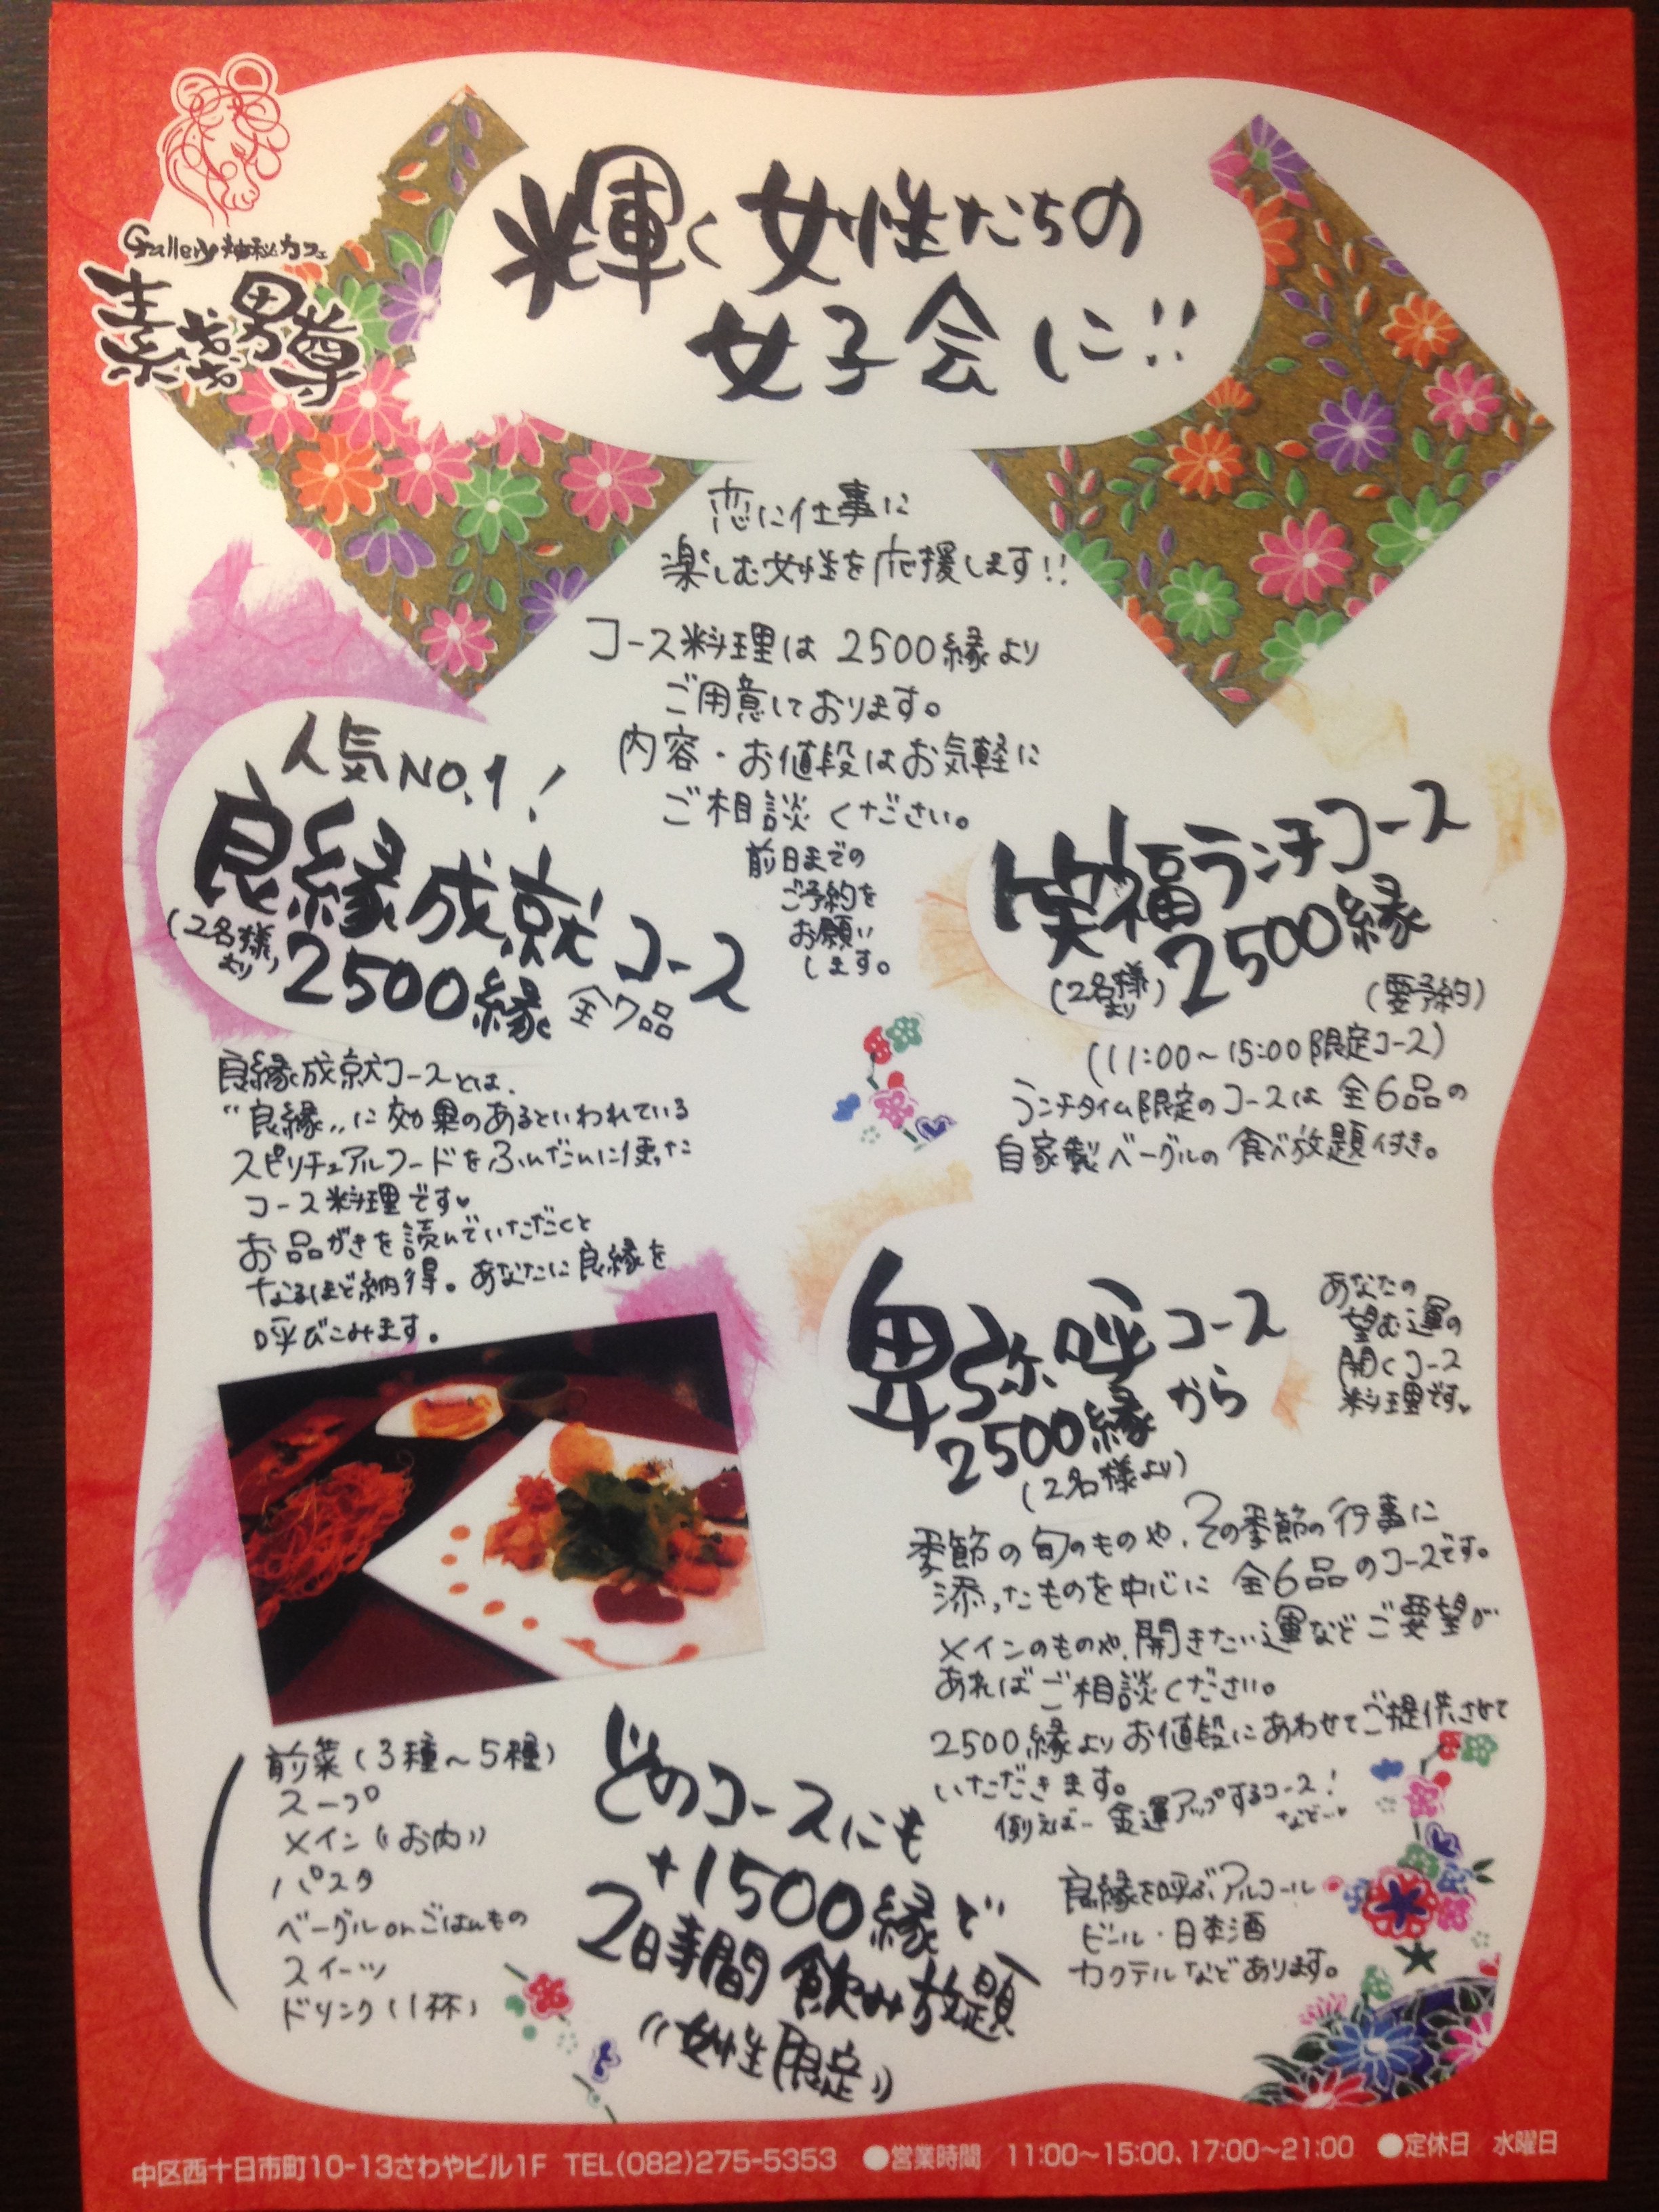 Gallery 神秘カフェ
素戔男尊
輝く女性たちの
女子会に!!
恋に仕事に
楽しむ女性を応援します!!
コース料理は 2500縁より
ご用意しております。
内容・お値段はお気軽に
ご相談ください。
前日までの
ご予約を
お願い
します。
人気NO.1!
良縁成就コース
(2名様より) 2500縁 全7品
良縁成就コースとは、
"良縁"に効果のあるといわれている
スピリチュアルフードをふんだんに使った
コース料理です♥
お品がきを読んでいただくと
なるほど納得。あなたに良縁を
呼びこみます。
前菜(3種~5種)
スープ
メイン((お肉))
パスタ
ベーグルorごはんもの
スイーツ
ドリンク(1杯)
笑福ランチコース
(2名様より) 2500縁 (要予約)
(11:00~15:00限定コース)
ランチタイム限定のコースは 全6品の
自家製ベーグルの食べ放題付き。
卑弥呼コース
2500縁から
(2名様より)
あなたの
望む運の
開くコース
料理です♥
季節の旬のものや、その季節の行事に
添ったものを中心に 全6品のコースです。
メインのものや、開きたい運などご要望が
あればご相談ください。
2500縁よりお値段にあわせてご提供させて
いただきます。
例えば… 金運アップするコース!
など…♥
どのコースにも
+1500縁で
2時間飲み放題
((女性限定))
良縁を呼ぶアルコール
ビール・日本酒
カクテルなどあります。
中区西十日市町10-13さわやビル1F TEL(082)275-5353 ●営業時間 11:00~15:00、17:00~21:00 ●定休日 水曜日